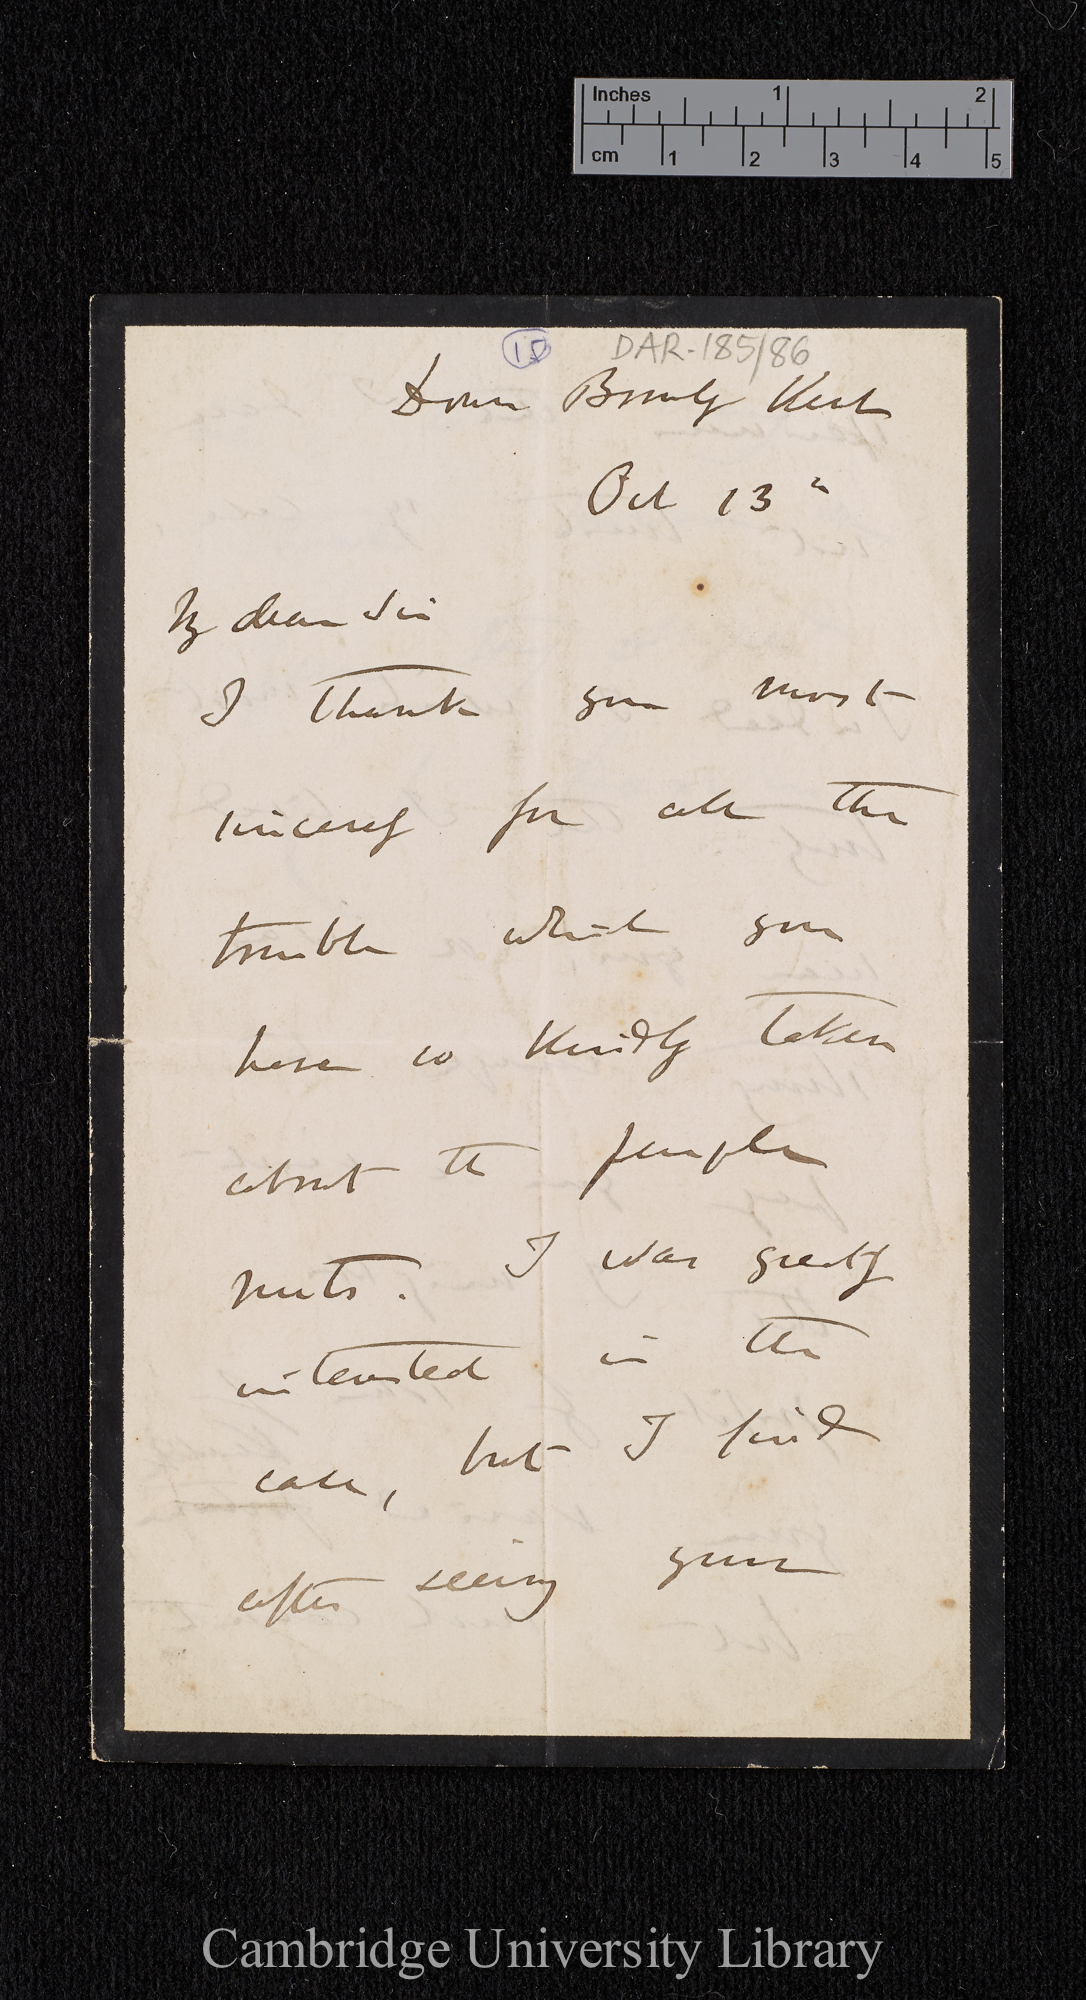 Inches 1 2
cm 1 2 3 4 5
15 DAR-185/86
Down Bromley Kent
Oct 13th
My dear Sir
I thank you most
sincerely for all the
trouble which you
have so kindly taken
about the
nuts. I was greatly
interested in the
case, but I find
after seeing your
Cambridge University Library